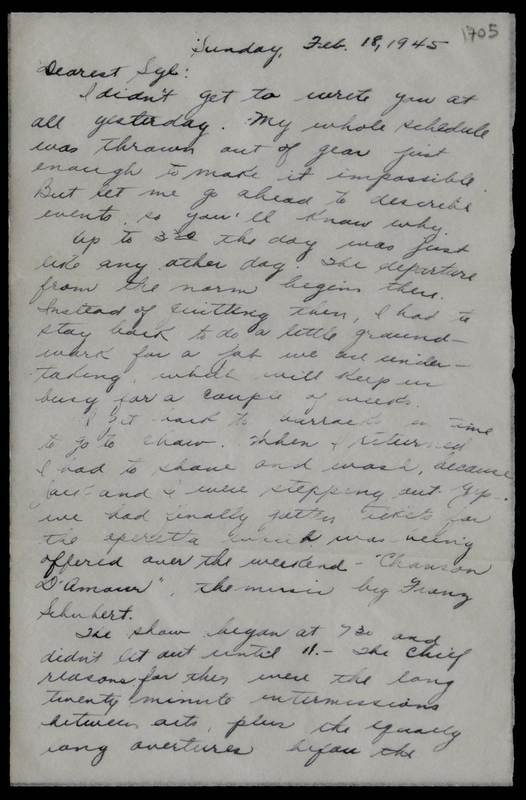 1705
Sunday, Feb. 18, 1945
Dearest Syl:
I didn't get to write you at
all yesterday. My whole schedule
was thrown out of gear just
enough to make it impossible.
But let me go ahead to describe
events, so you'll know why.
Up to 3:30 the day was just
like any other day. The departure
from the norm begins there.
Instead of quitting then, I had to
stay back to do a little ground-
work for a job we are under-
taking, which will keep us
busy for a couple of weeks.
I got back to barracks in time
to go to chow. When I returned
I had to shave and wash, because
Jack and I were stepping out. Yep -
we had finally gotten tickets for
the operetta which was being
offered over the weekend - "Chanson
D'Amour", the music by Franz
Schubert.
The show began at 730 and
didn't let out until 11. - The chief
reasons for this were the long
twenty minute intermissions
between acts, plus the equally
long overtures before the